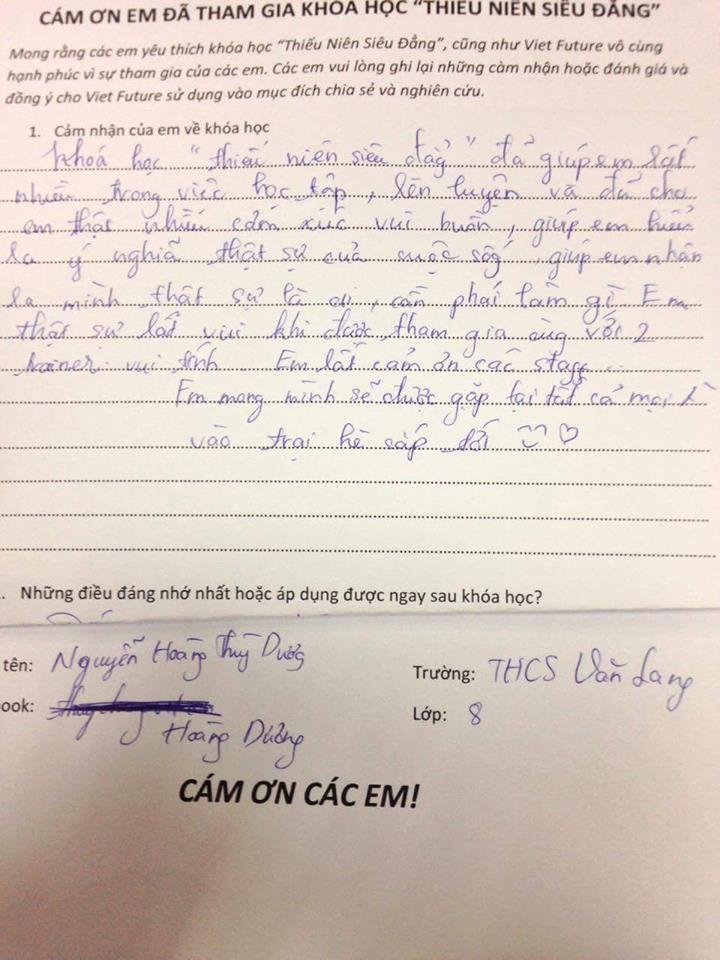 CÁM ƠN EM ĐÃ THAM GIA KHÓA HỌC “THIẾU NIÊN SIÊU ĐẲNG”
Mong rằng các em yêu thích khóa học “Thiếu Niên Siêu Đẳng”, cũng như Viet Future vô cùng
hạnh phúc vì sự tham gia của các em. Các em vui lòng ghi lại những cảm nhận hoặc đánh giá và
đồng ý cho Viet Future sử dụng vào mục đích chia sẻ và nghiên cứu.
1. Cảm nhận của em về khóa học
Khoá học “thiếu niên siêu đẳg” đã giúp em lất
nhiều trong việc học tập, lèn luyện và đã cho
em thật nhiều cảm xúc vui buồn, giúp em hiểu
la ý nghĩa thật sự của cuộc sốg, giúp em nhận
la mình thật sự là ai, cần phải làm gì Em
thật sự lất vui khi được tham gia cùg với 2
trainer vui tính Em lất cảm ơn các staff...
Em mong mình sẽ được gặp lại tất cả mọi
vào trại hè sắp tới ♡
. Những điều đáng nhớ nhất hoặc áp dụng được ngay sau khóa học?
tên: Nguyễn Hoàng Thùy Dương
Trường: THCS Văn Lang
ook: Hoàng Dương
Lớp: 8
CÁM ƠN CÁC EM!